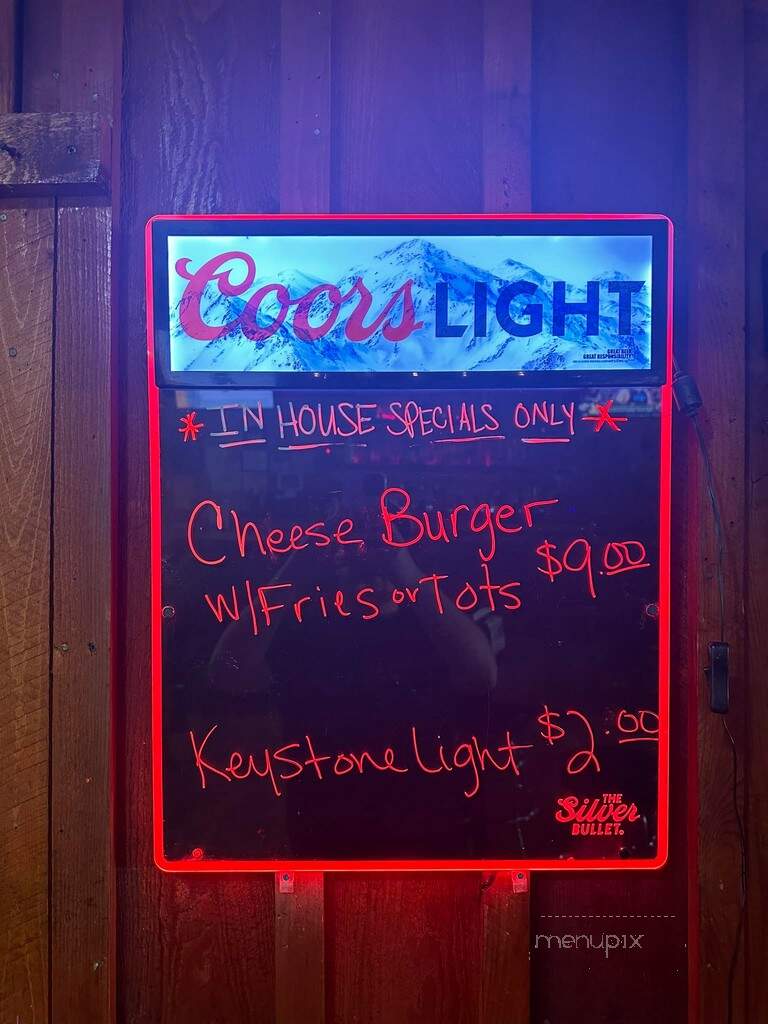 Coors LIGHT
GREAT BEER
GREAT RESPONSIBILITY
* IN HOUSE SPECIALS ONLY *
Cheese Burger
W/Fries or Tots $9.00
Keystone Light $2.00
THE
Silver
BULLET.
menupix